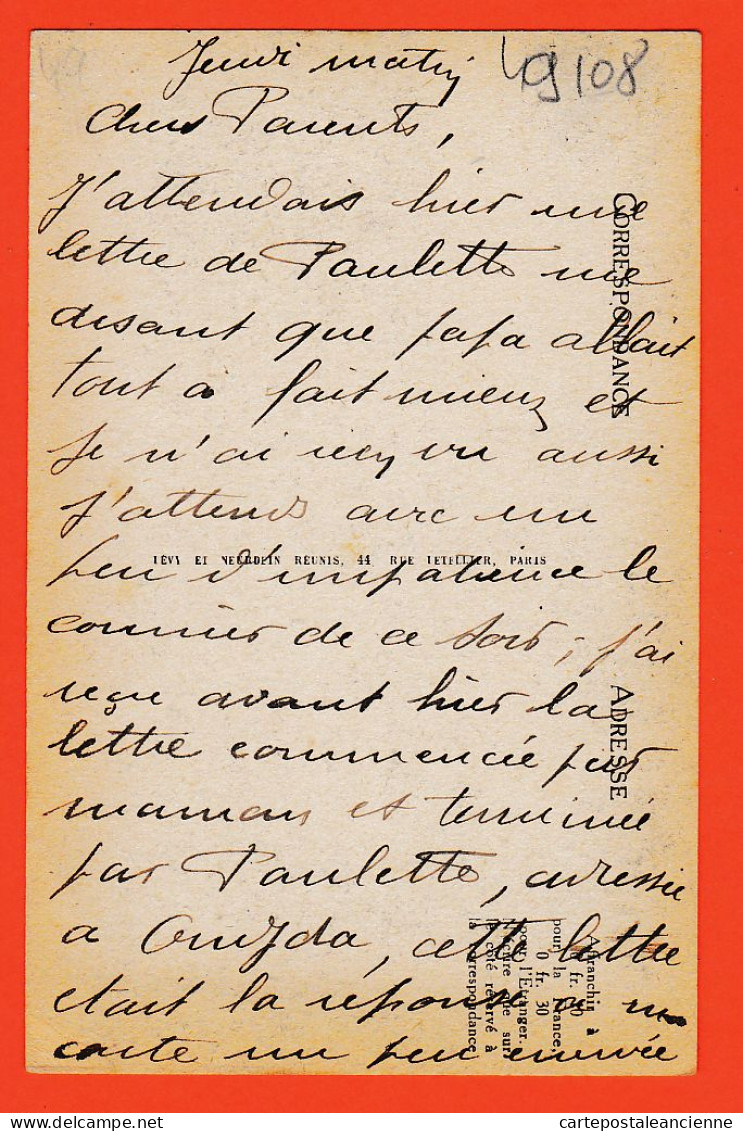 49
49108
Jeudi matin
Chers Parents,
J'attendais hier une
lettre de Paulette me
disant que papa allait
tout à fait mieux et
je n'ai reçu aussi
J'attends avec un
peu d'impatience le
courrier de ce soir, j'ai
reçu avant hier la
lettre commencée par
maman et terminée
par Paulette, adressée
a Oudjda, cette lettre
etait la réponse a ma
carte un peu
CORRESPONDANCE
ADRESSE
LÉVY ET NEURDEIN RÉUNIS, 44, RUE LETELLIER, PARIS
Affranchir à
pour la France,
0 fr. 30
pour l'Etranger.
sur
le côté réservé à
la correspondance
Delcampe.net
cartepostaleancienne